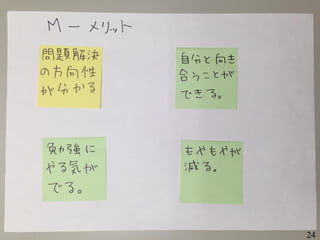 M－メリット
問題解決
の方向性
が分かる
自分と向き
合うことが
できる。
勉強に
やる気が
でる。
もやもやが
減る。
24